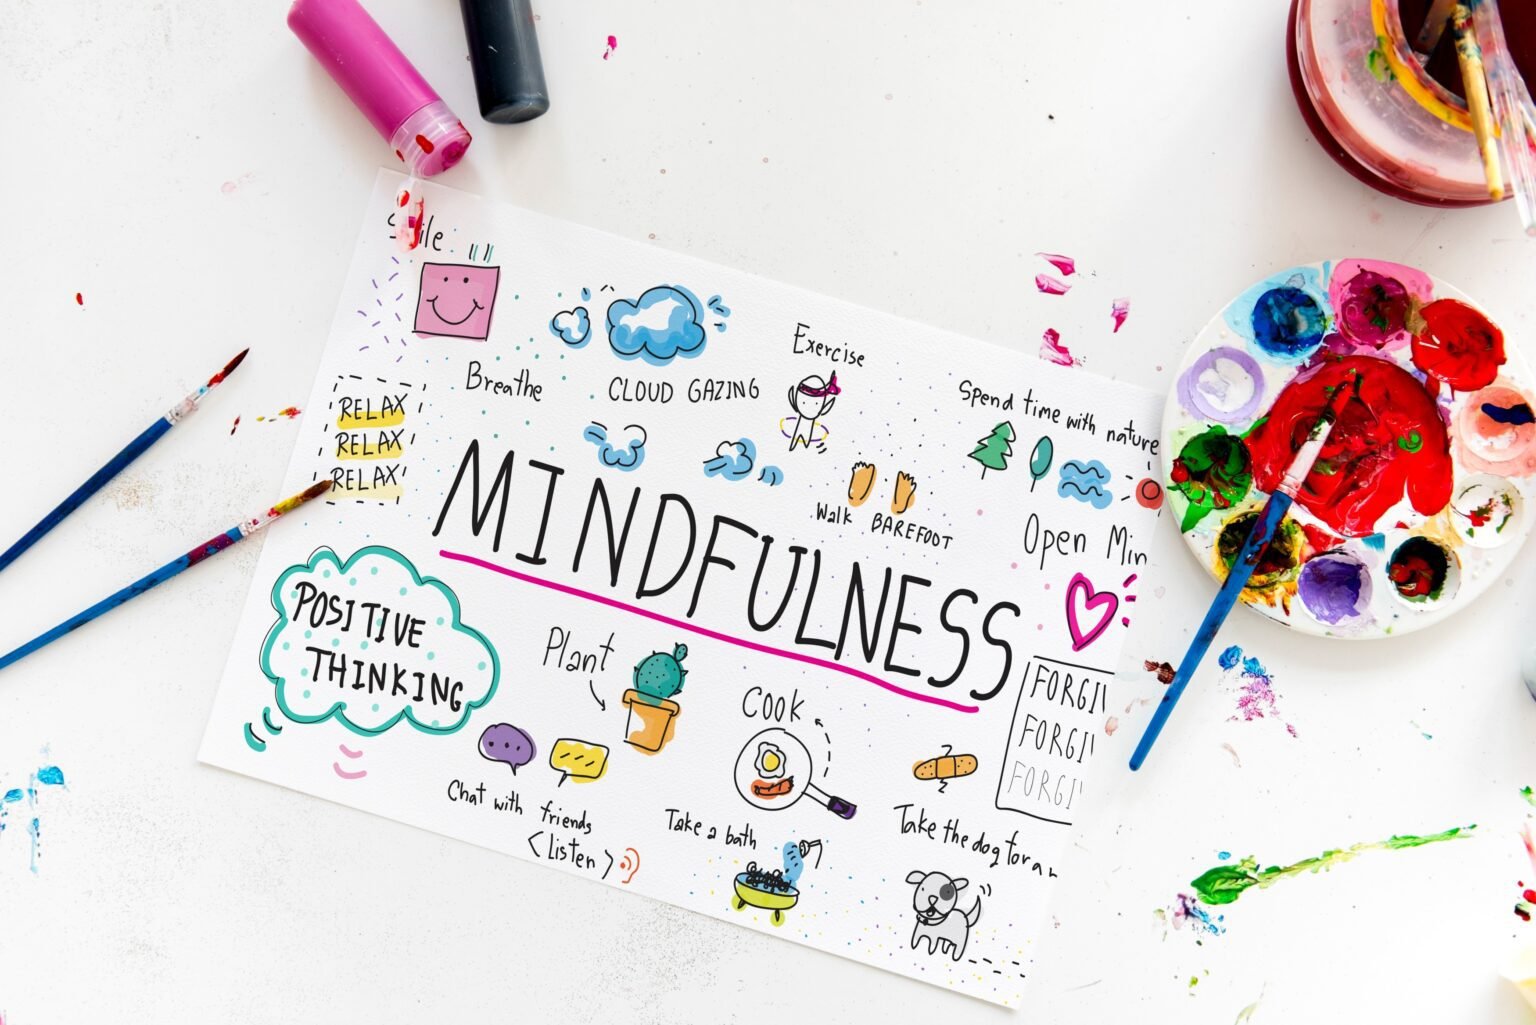 Breathe
CLOUD GAZING
Exercise
Spend time with nature
RELAX
RELAX
RELAX
Walk BAREFOOT
Open Min
MINDFULNESS
POSITIVE
THINKING
Plant
COOK
FORGI
FORGI
FORGI
Chat with friends
<Listen>
Take a bath
Take the dog for a